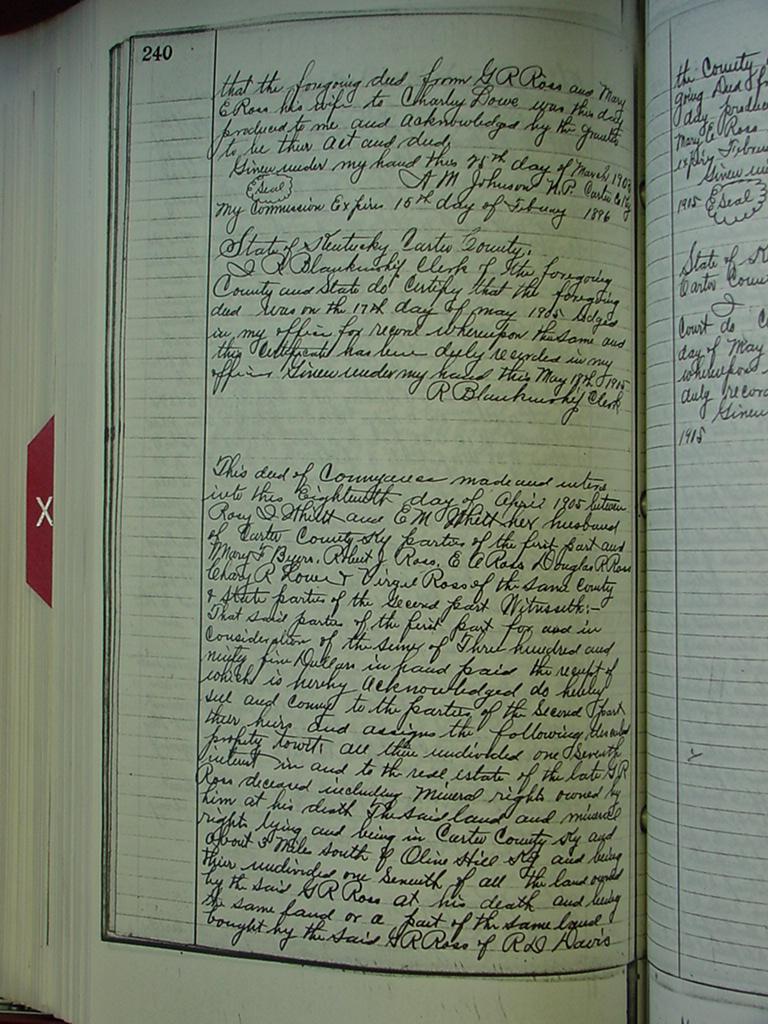 240
that the foregoing deed from G R Ross and Mary
E Ross his wife to Charley Lowe was this day
produced to me and acknowledged by the grantors
to be their act and deed.
Given under my hand this 25th day of March 190
E Seal A M Johnson N.P. Carter Co Ky
My Commission Expires 15th day of Febuary 1896
State of Kentucky Carter County.
I R Blankinship Clerk of the foregoing
County and State do certify that the foregoing
deed was on the 17th day of May 1905 lodged
in my office for record whereupon the same and
this certificate has been duly recorded in my
office. Given under my hand this May 18th 1905
R Blankinship Clerk
This deed of Conveyance made and entered
into this Eighteenth day of April 1905 between
Rosy I Whitt and E M Whitt her husband
of Carter County Ky parties of the first part and
Mary F Byers, Robert J Ross, E C Ross Douglas R Ross
Chary R Lowe & Virgie Ross of the same County
& State parties of the Second part Witnesseth:-
That said parties of the first part for and in
consideration of the sum of Three hundred and
ninty five Dollars in hand paid the receipt of
which is hereby acknowledged do hereby
sell and convey to the parties of the second part
their heirs and assigns the following described
property towit: all their undivided one seventh
interest in and to the real estate of the late G R
Ross deceased including mineral rights owned by
him at his death The said land and mineral
rights lying and being in Carter County Ky and
about 3 Miles South of Olive Hill Ky and being
their undivided one Seventh of all the land owned
by the said G R Ross at his death and being
the same land or a part of the same land
bought by the said G R Ross of R D Davis
X
the County
going Deed f
day produce
Mary E Ross
expire Februa
Given un
1915 E Seal
State of K
Carter Coun
I
Court do C
day of May
whereupon
duly recor
Given
1915